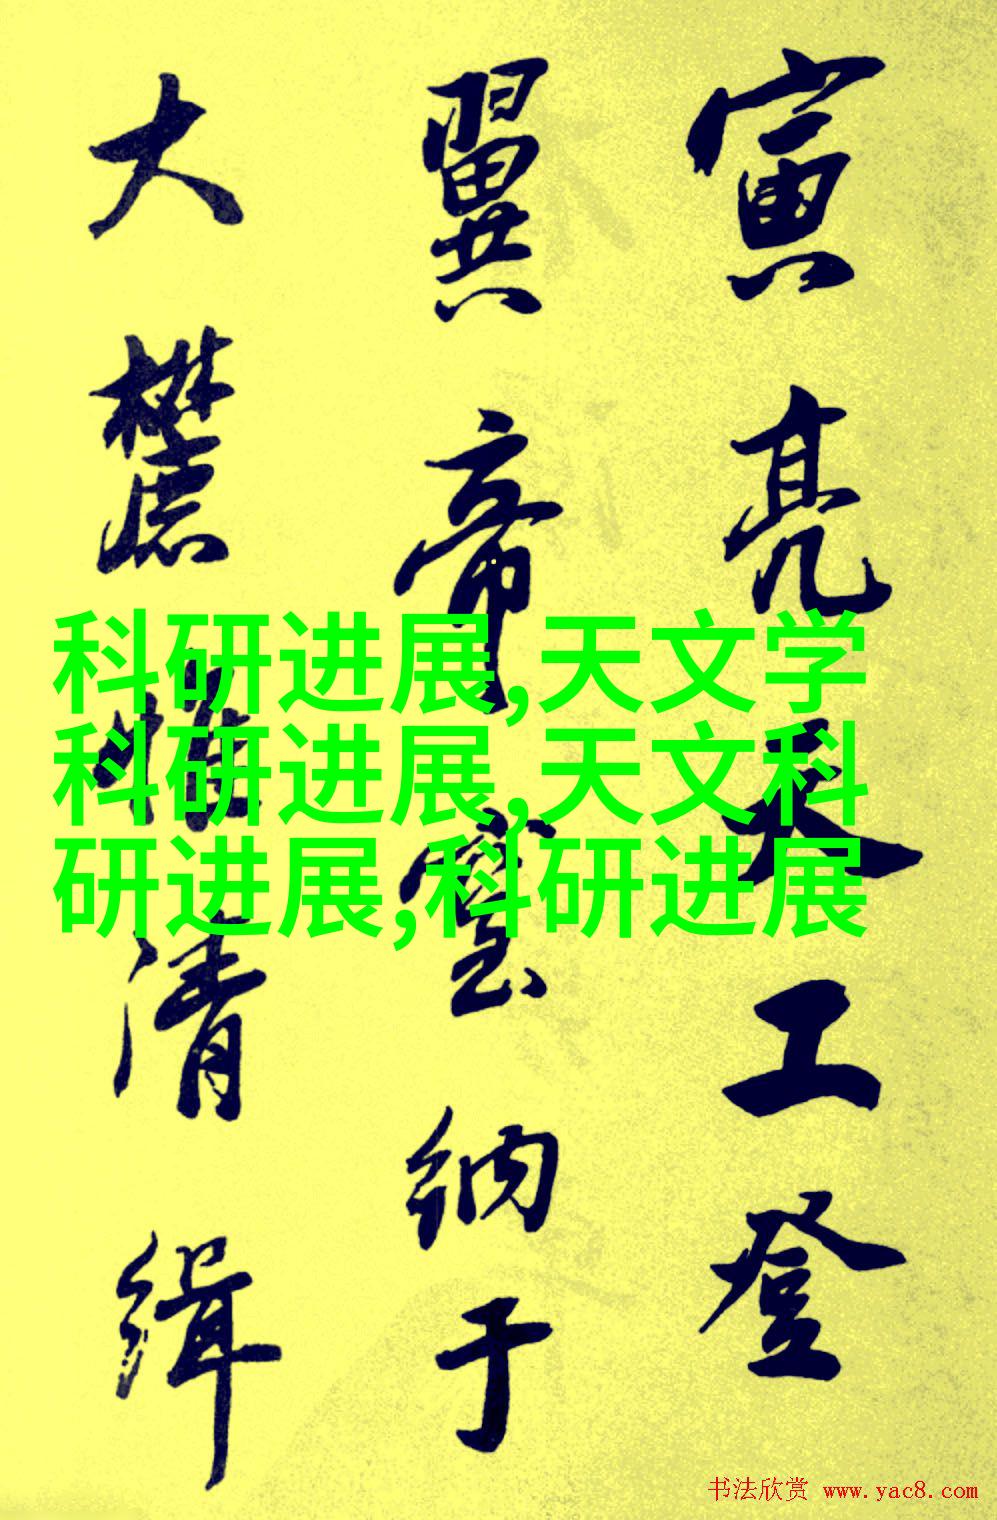 寅亮天工登
翼帝室纳于
大麓惟清缉
科研进展,天文学
科研进展,天文科
研进展,科研进展
书法欣赏 www.yac8.com